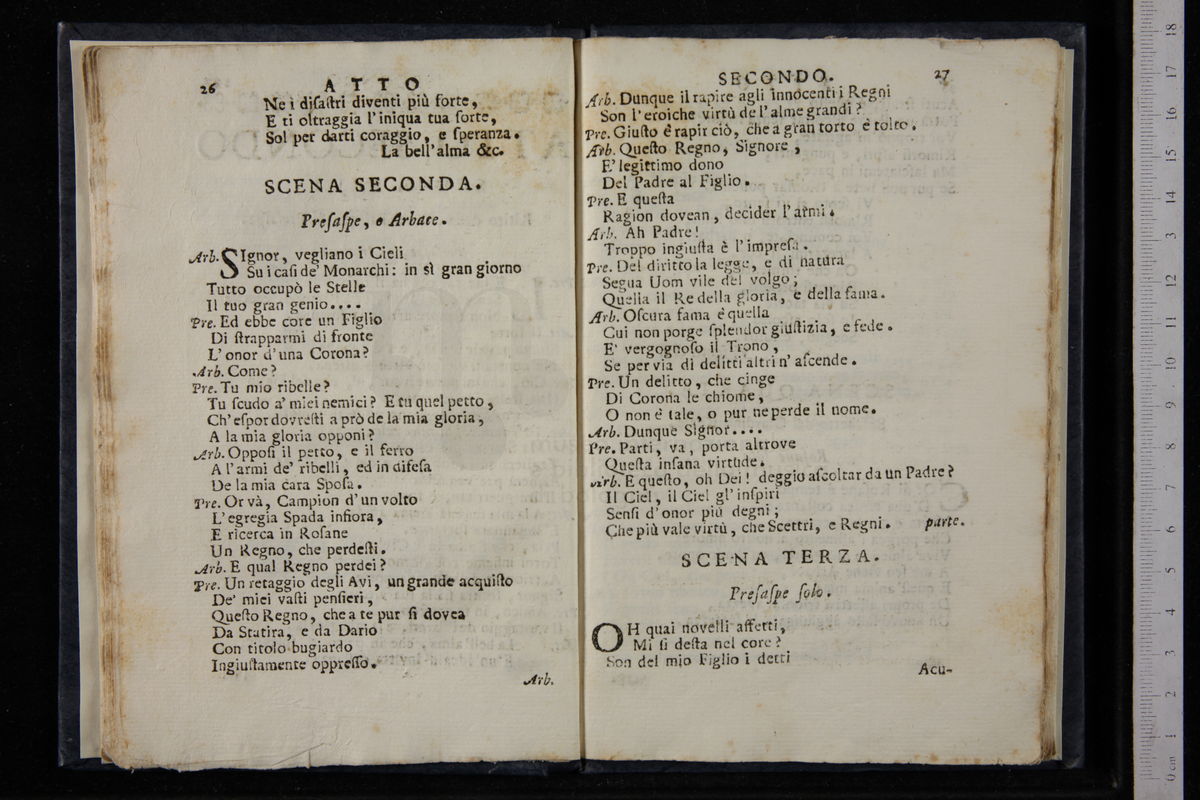 26 ATTO
Ne i diſaſtri diventi più forte,
E ti oltraggia l'iniqua tua ſorte,
Sol per darti coraggio, e ſperanza.
La bell'alma &c.
SCENA SECONDA.
Preſaſpe, e Arbate.
Arb. SIgnor, vegliano i Cieli
Su i caſi de' Monarchi: in sì gran giorno
Tutto occupò le Stelle
Il tuo gran genio....
Pre. Ed ebbe core un Figlio
Di ſtrapparmi di fronte
L'onor d'una Corona?
Arb. Come?
Pre. Tu mio ribelle?
Tu ſcudo a' miei nemici? E tu quel petto,
Ch'eſpor dovreſti a prò de la mia gloria,
A la mia gloria opponi?
Arb. Oppoſi il petto, e il ferro
A l'armi de' ribelli, ed in difeſa
De la mia cara Spoſa.
Pre. Or và, Campion d'un volto
L'egregia Spada infiora,
E ricerca in Roſane
Un Regno, che perdeſti.
Arb. E qual Regno perdei?
Pre. Un retaggio degli Avi, un grande acquiſto
De' miei vaſti penſieri,
Queſto Regno, che a te pur ſi dovea
Da Statira, e da Dario
Con titolo bugiardo
Ingiuſtamente oppreſſo.
Arb.
SECONDO. 27
Arb. Dunque il rapire agli innocenti i Regni
Son l'eroiche virtù de l'alme grandi?
Pre. Giuſto è rapir ciò, che a gran torto è tolto.
Arb. Queſto Regno, Signore,
E' legittimo dono
Del Padre al Figlio.
Pre. E queſta
Ragion dovean, decider l'armi.
Arb. Ah Padre!
Troppo ingiuſta è l'impreſa.
Pre. Del diritto la legge, e di natura
Segua Uom vile del volgo;
Quella il Re della gloria, e della fama.
Arb. Oſcura fama è quella
Cui non porge ſplendor giuſtizia, e fede.
E' vergognoſo il Trono,
Se per via di delitti altri n' aſcende.
Pre. Un delitto, che cinge
Di Corona le chiome,
O non è tale, o pur ne perde il nome.
Arb. Dunque Signor....
Pre. Parti, va, porta altrove
Queſta inſana virtude.
Arb. E queſto, oh Dei! deggio aſcoltar da un Padre?
Il Ciel, il Ciel gl'inſpiri
Senſi d'onor più degni;
Che più vale virtù, che Scettri, e Regni. parte.
SCENA TERZA.
Preſaſpe ſolo.
OH quai novelli affetti,
Mi ſi deſta nel core?
Son del mio Figlio i detti
Acu-